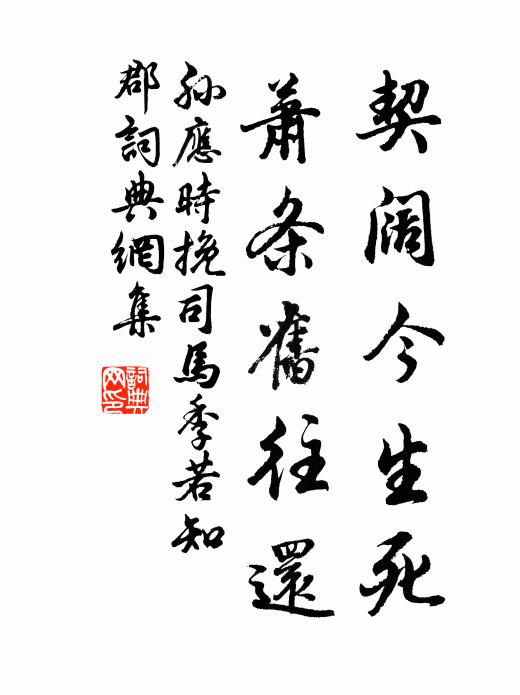 契阔今生死
蕭条舊往還
孙應時挽司馬季若知
郡詞典網集
詞典
网印